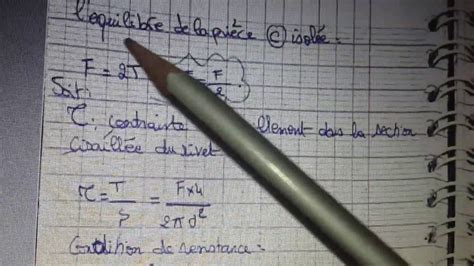 l'equilibre de la pièce ② isolée:
F = 2T = F/2
Soit:
τ: contrainte ellement dans la section
cisaillée du rivet
τ = T/S = F×4/2πd²
Condition de resistance: